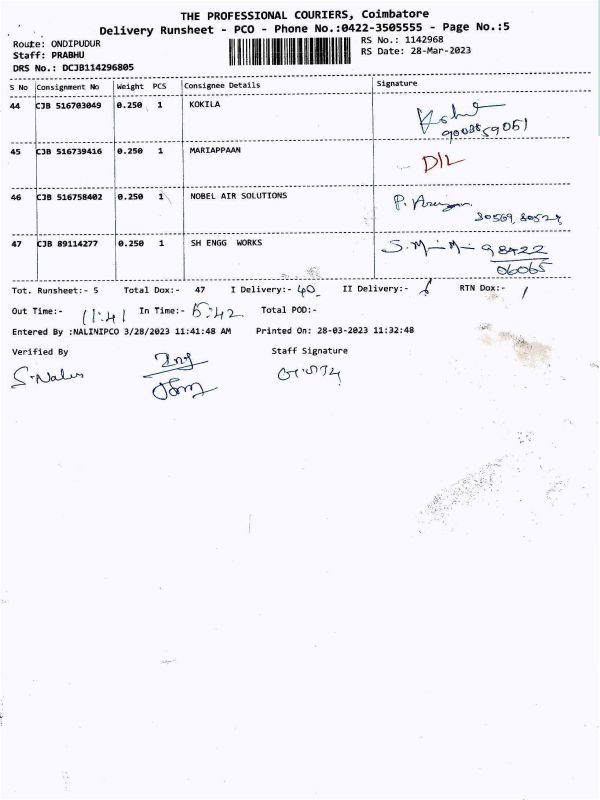 THE PROFESSIONAL COURIERS, Coimbatore
Delivery Runsheet - PCO - Phone No.:0422-3505555 - Page No.:5
Route: ONDIPUDUR
Staff: PRABHU
DRS No.: DCJB114296805
RS No.: 1142968
RS Date: 28-Mar-2023
S No Consignment No Weight PCS Consignee Details Signature
44 CJB 516703049 0.250 1 KOKILA
45 CJB 516739416 0.250 1 MARIAPPAAN D/L
46 CJB 516758402 0.250 1 NOBEL AIR SOLUTIONS
80569, 80524
47 CJB 89114277 0.250 1 SH ENGG WORKS 98422
06065
Tot. Runsheet:- 5 Total Dox:- 47 I Delivery:- 40 II Delivery:- RTN Dox:- /
Out Time:- 11:41 In Time:- 5:42 Total POD:-
Entered By :NALINIPCO 3/28/2023 11:41:48 AM Printed On: 28-03-2023 11:32:48
Verified By Staff Signature